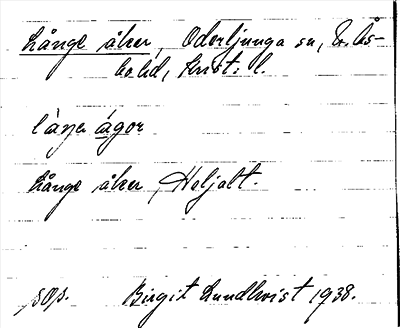 Långe åker, Oderljunga sn, N. Ås-
bohd, Krist. l.
låŋa ågor
Långe åker, Heljalt.
sOp. Birgit Lundkvist 1938.